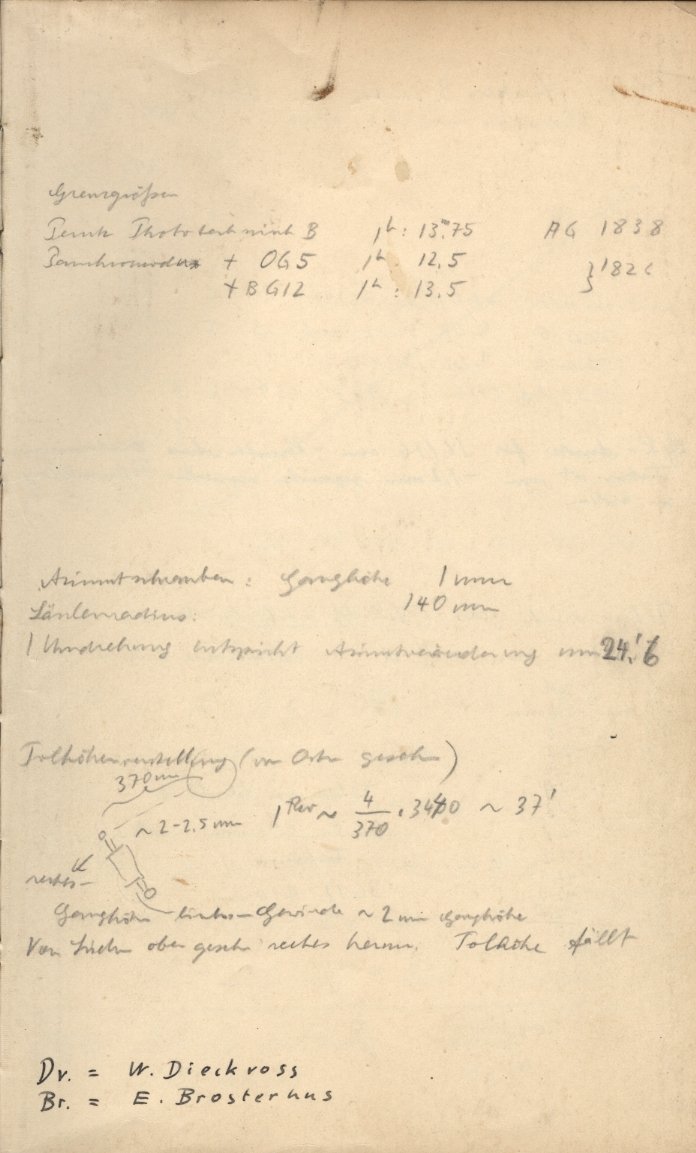 Grenzgrößen
Perutz Phototechnisch B 1ʰ: 13ᵐ.75 AG 1838
+ OG5 1ʰ 12.5 } 1826
+ BG12 1ʰ: 13.5
Azimutschrauben: Ganghöhe 1 mm
Säulenradius: 140 mm
1 Umdrehung entspricht Azimutveränderung um 24.'6
Polhöhenverstellung (von Osten gesehen)
370 mm
~ 2-2.5 mm 1 Rev ~ 4/370 · 3440 ~ 37'
rechts-
Ganghöhe links-Gewinde ~ 2 mm Ganghöhe
Von Süden oben gesehen rechts herum. Polhöhe fällt
Dr. = W. Dieckvoss
Br. = E. Brosterhus